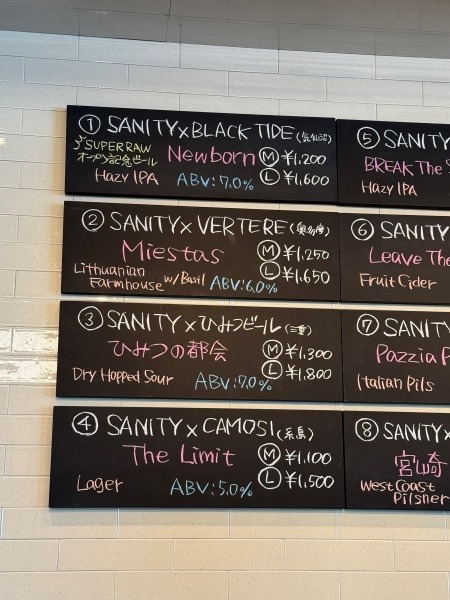 ① SANITY x BLACK TIDE (気仙沼)
SUPER RAW
オープン記念ビール
Newborn
Ⓜ ¥1,200
Hazy IPA
ABV: 7.0%
Ⓛ ¥1,600
② SANITY x VERTERE (奥多摩)
Miestas
Ⓜ ¥1,250
Lithuanian
Farmhouse w/Basil
ABV: 6.0%
Ⓛ ¥1,650
③ SANITY x ひみつビール (三重)
ひみつの都会
Ⓜ ¥1,300
Dry Hopped Sour
ABV: 7.0%
Ⓛ ¥1,800
④ SANITY x CAMOSI (糸島)
The Limit
Ⓜ ¥1,100
Lager
ABV: 5.0%
Ⓛ ¥1,500
⑤ SANITY
BREAK The S
Hazy IPA
⑥ SANITY
Leave The
Fruit Cider
⑦ SANITY
Pazzia P
Italian Pils
⑧ SANITY x
宮崎
West Coast
Pilsner